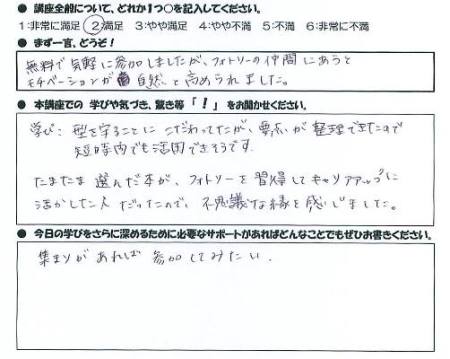 ● 講座全般について、どれか1つ○を記入してください。
1:非常に満足 ②満足 3:やや満足 4:やや不満 5:不満 6:非常に不満
● まず一言、どうぞ!
無料で気軽に参加しましたが、フォトリーの仲間にあうと
モチベーションが自然と高められました。
● 本講座での 学びや気づき、驚き等「!」をお聞かせください。
学び:型を守ることにこだわってたが、要点が整理できたので
短時間でも活用できそうです.
たまたま選んだ本が、フォトリーを習得してキャリアアップに
活かした人だったので、不思議な縁を感じました。
● 今日の学びをさらに深めるために必要なサポートがあればどんなことでもぜひお書きください。
集まりがあれば参加してみたい.